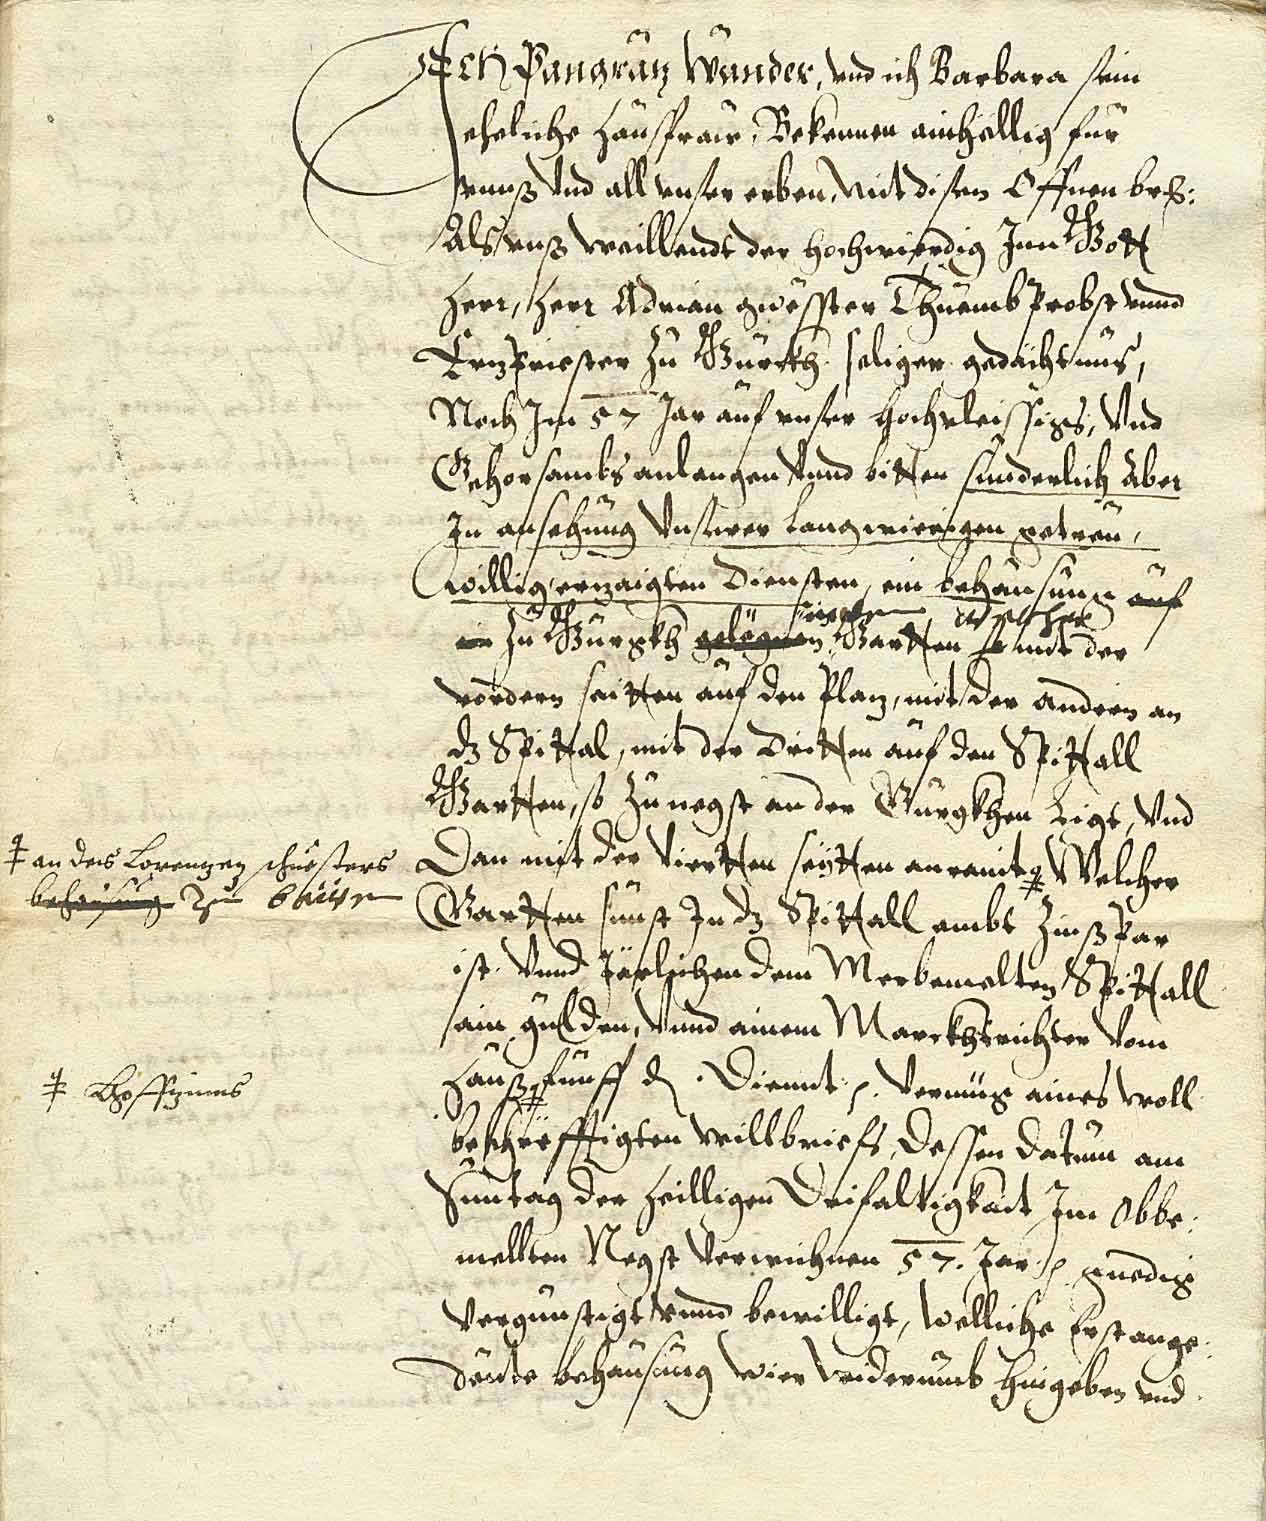 Ich Pangrätz Wunder, vnd ich Barbara sein
eheliche haußfraw, Bekennen ainhellig für
vnnß Vnd all vnser erben, mit disem Offnen br:
Als vnß weillendt der hochwierdig Inn Gott
herr, herr Adrian gwësster Thuemb Probst vnnd
Erzpriester zu Gurckh seliger gedächtnuß,
Noch Im 57 Jar auf vnser hochvleissigs, Vnd
Gehorsambs anlangen Vnnd bitten sunderlich aber
In ansehung Vnserer langwierigen getreu,
willig erzaigten Diensten, ein behausung auf
in Zu Gurgkh gelëgnen Gartten so mit der
welcher
vordern seitten auf den Plaz, mit der andern an
dz Spittal, mit der dritten auf den Spittall
Gartten, so zu negst an der Gurgkhen ligt, Vnd
Dan mit der Viertten seÿtten anraint Welcher
‡ an des Lorenzen schuesters
behausung Zu
Gartten sunst In dz Spittall ambt Zinßpar
ist. Vnnd Järlichen dem Merbemelten Spittall
ain gulden, Vnnd ainem Marckhtrichter vom
Hauß fünff d. Diennt. Vermüg aines woll
‡ Hoffzinns
bekhrëfftigten willbriefs, dessen datum am
Suntag der Heilligen Drifaltigkait Im Obbe:
mellten Negst Verwichnen 57. Jar. gnedig
Vergunstigt vnnd bewilligt, welliche Erstange:
deute behausung wier widerumb hingeben vnd